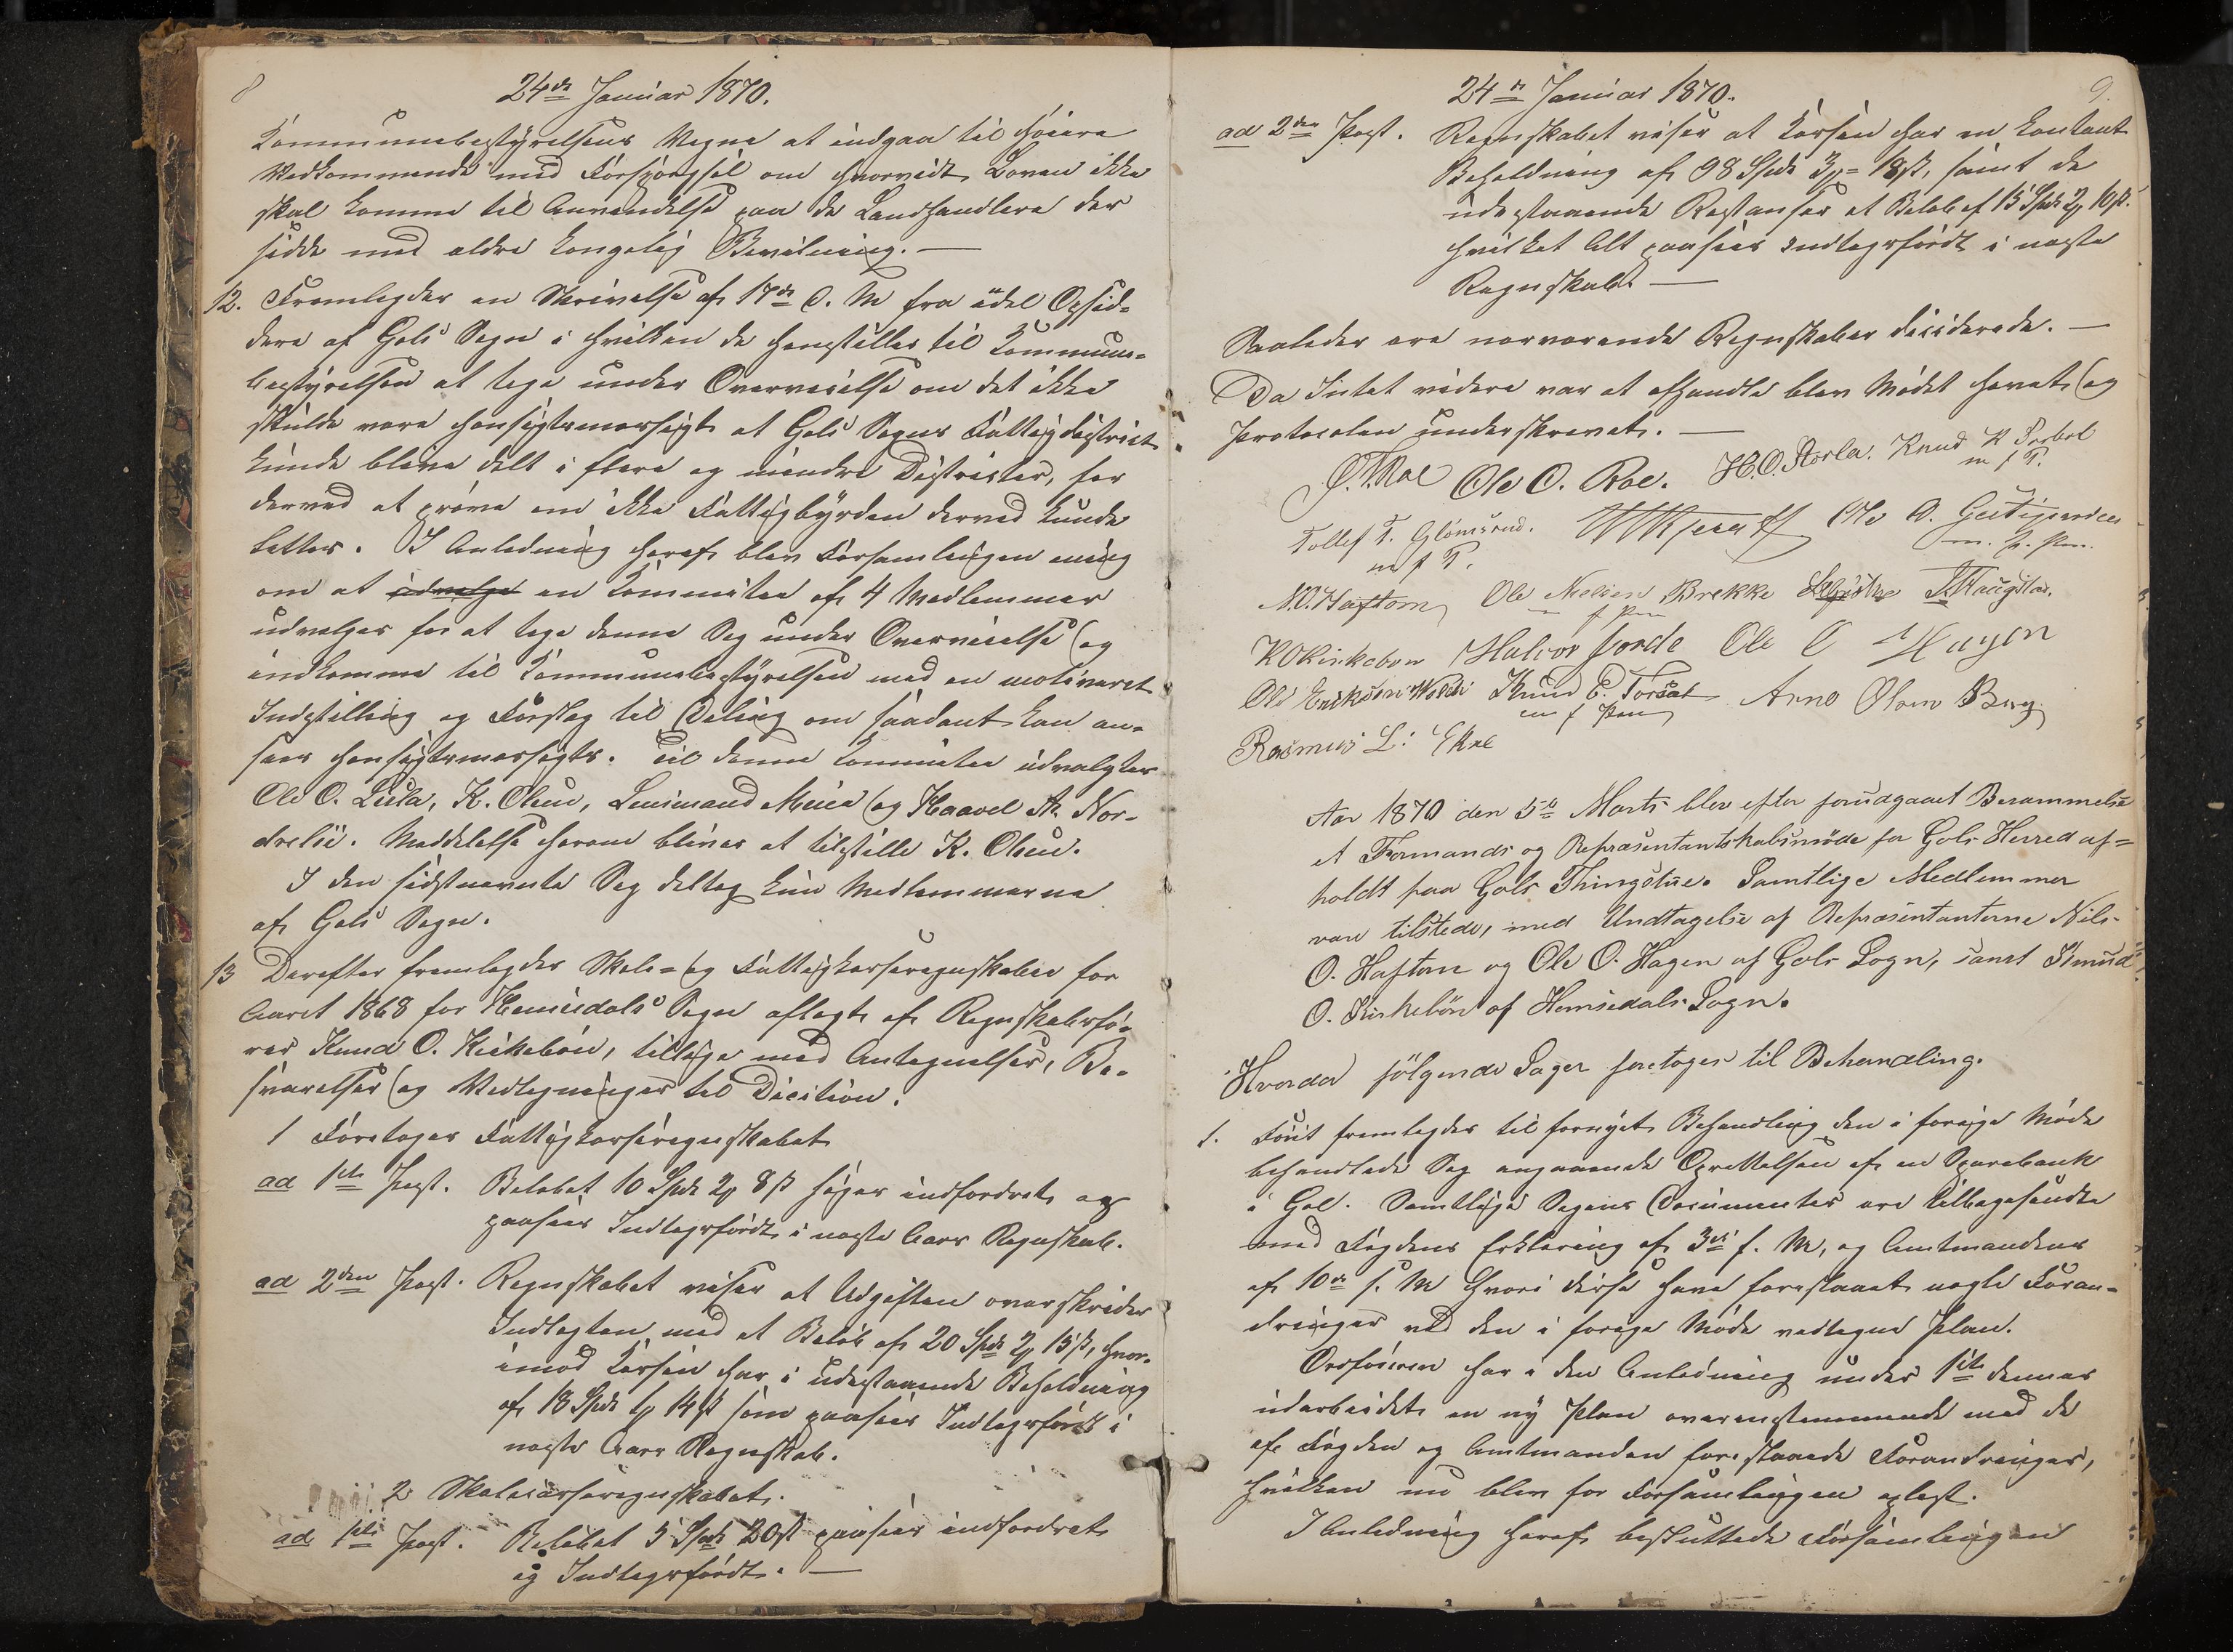 8
24de Januar 1870.
Kommunebestyrelsens Vegne at indgaa til høiere
Vedkommende med Forspørgsel om hvorvidt Loven ikke
skal komme til Anvendelse paa de Landhandlere der
sidde med ældre kongelig Bevilning. —
12. Fremlagdes en Skrivelse af 17de d. M fra endel Opsid-
dere af Gols Sogn i hvilken de henstilles til Kommune-
bestyrelsen at tage under Overveielse om det ikke
skulde være hensigtsmæssigt at Gols Sogns Fattigdistrict
kunde blive delt i flere og mindre Districter, for
derved at prøve om ikke Fattigbyrden derved kunde
lettes. I Anledning heraf blev Forsamlingen enig
om at udvælge en Kommitee af 4 Medlemmer
udvalges for at tage denne Sag under Overveielse og
indkomme til Kommunebestyrelsen med en motiveret
Indstilling og Forslag til Deling om saadant kan an-
sees hensigtsmæssigts. Til denne Kommitee udvalgtes
Ole O. Lula, K. Olsen, Lensmand Meier og Haavel A. Nor-
drelie. Meddelelse herom blives at tilstille K. Olsen.
I den sidstnævnte Sag deltog kun Medlemmerne
af Gols Sogn.
13 Derefter fremlagdes Skole- og Fattigkasseregnskaber for
Aaret 1868 for Hemsedals Sogn aflagt af Regnskabsfø-
rer Knud O. Kirkebøn, tillige med Antegnelser, Be-
svarelser og Vedtegninger til Decition.
1 Foretoges Fattigkasseregnskabet
ad 1ste Post. Beløbet 10 Spd 2 # 8 ß søges indfordret og
paasees Indtægtsført i næste Aars Regnskab.
ad 2den Post. Regnskabet viser at Udgiften overskrider
Indtægten med et Beløb af 20 Spd 2 # 15 ß, hvor-
imod Kassen har i udestaaende Beholdning
af 18 Spd 1 # 14 ß som paasees Indtægtsført i
næste Aars Regnskab.
2 Skolekasseregnskabet.
ad 1ste Post. Beløbet 5 Spd 20 ß paasees indfordret
og Indtægtsført. —
24de Januar 1870.
9.
ad 2den Post. Regnskabet viser at Kassen har en kontant
Beholdning af 98 Spd 3 # 18 ß, samt de
udestaaende Restanser et Beløb af 15 Spd 2 # 10 ß.
hvilket Alt paasees indtægtsført i næste
Regnskab. —
Saaledes ere nærværende Regnskaber desiderede. —
Da Intet videre var at afhandle blev Mødet hævet og
Protocolen underskrevet. —
Ole O. Roe. H.O. Storla. Knud K
m f P.
Tollef T. Glømsrud. Ole O.
m f P. m. f. Pen.
N.O. Haftorn Ole Nielsen Brekke
f Pen
K O Kirkebøn Halvor Jorde Ole O Hagen
Ole Eriksen Knud E. Torset Arne Olsen Berg
m f Pen
Rasmus L. Ekre
Aar 1870 den 5te Marts blev efter forudgaaet Berammelse
et Formands og Repræsentantskabsmøde for Gols Herred af=
holdt paa Gols Thingstue. Samtlige Medlemmer
vare tilstede, med Undtagelse af Repræsentanterne Nils
O. Haftorn og Ole O. Hagen af Gols Sogn, samt Knud
O. Kirkebön af Hemsedals Sogn.
Hvorda fölgende Sager foretoges til Behandling.
1. Først fremlagdes til fornyet Behandling den i forrige Møde
behandlede Sag angaaende Oprettelsen af en Sparebank
i Gol. Samtlige Sagens Documenter ere tilbagesendte
med Fogdens Erklæring af 3di f. M, og Amtmandens
af 10de s. M hvori disse have foreslaaet nogle Foran-
dringer ved den i forrige Møde vedtagne Plan.
Ordføreren har i den Anledning under 1ste dennes
udarbeidet en ny Plan overenstemmende med de
af Fogden og Amtmanden foreslaaede Forandringer,
hvilken nu blev for Forsamlingen oplæst.
I Anledning heraf besluttede Forsamlingen